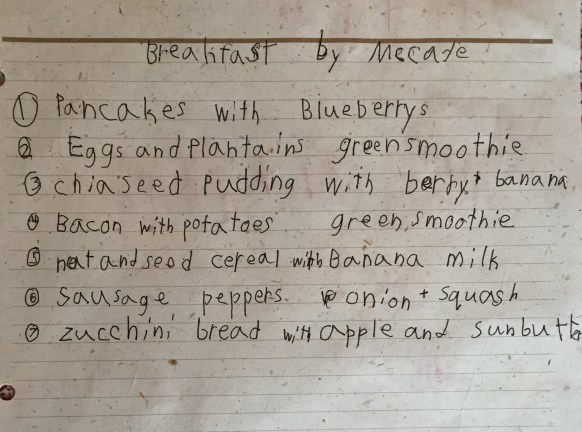 Breakfast by Mccade
① Pancakes with Blueberrys
② Eggs and Plantains green smoothie
③ chia seed Pudding with berry + banana
④ Bacon with potatoes green smoothie
⑤ nut and seed cereal with Banana milk
⑥ Sausage peppers onion + squash
⑦ zucchini bread with apple and sunbutter